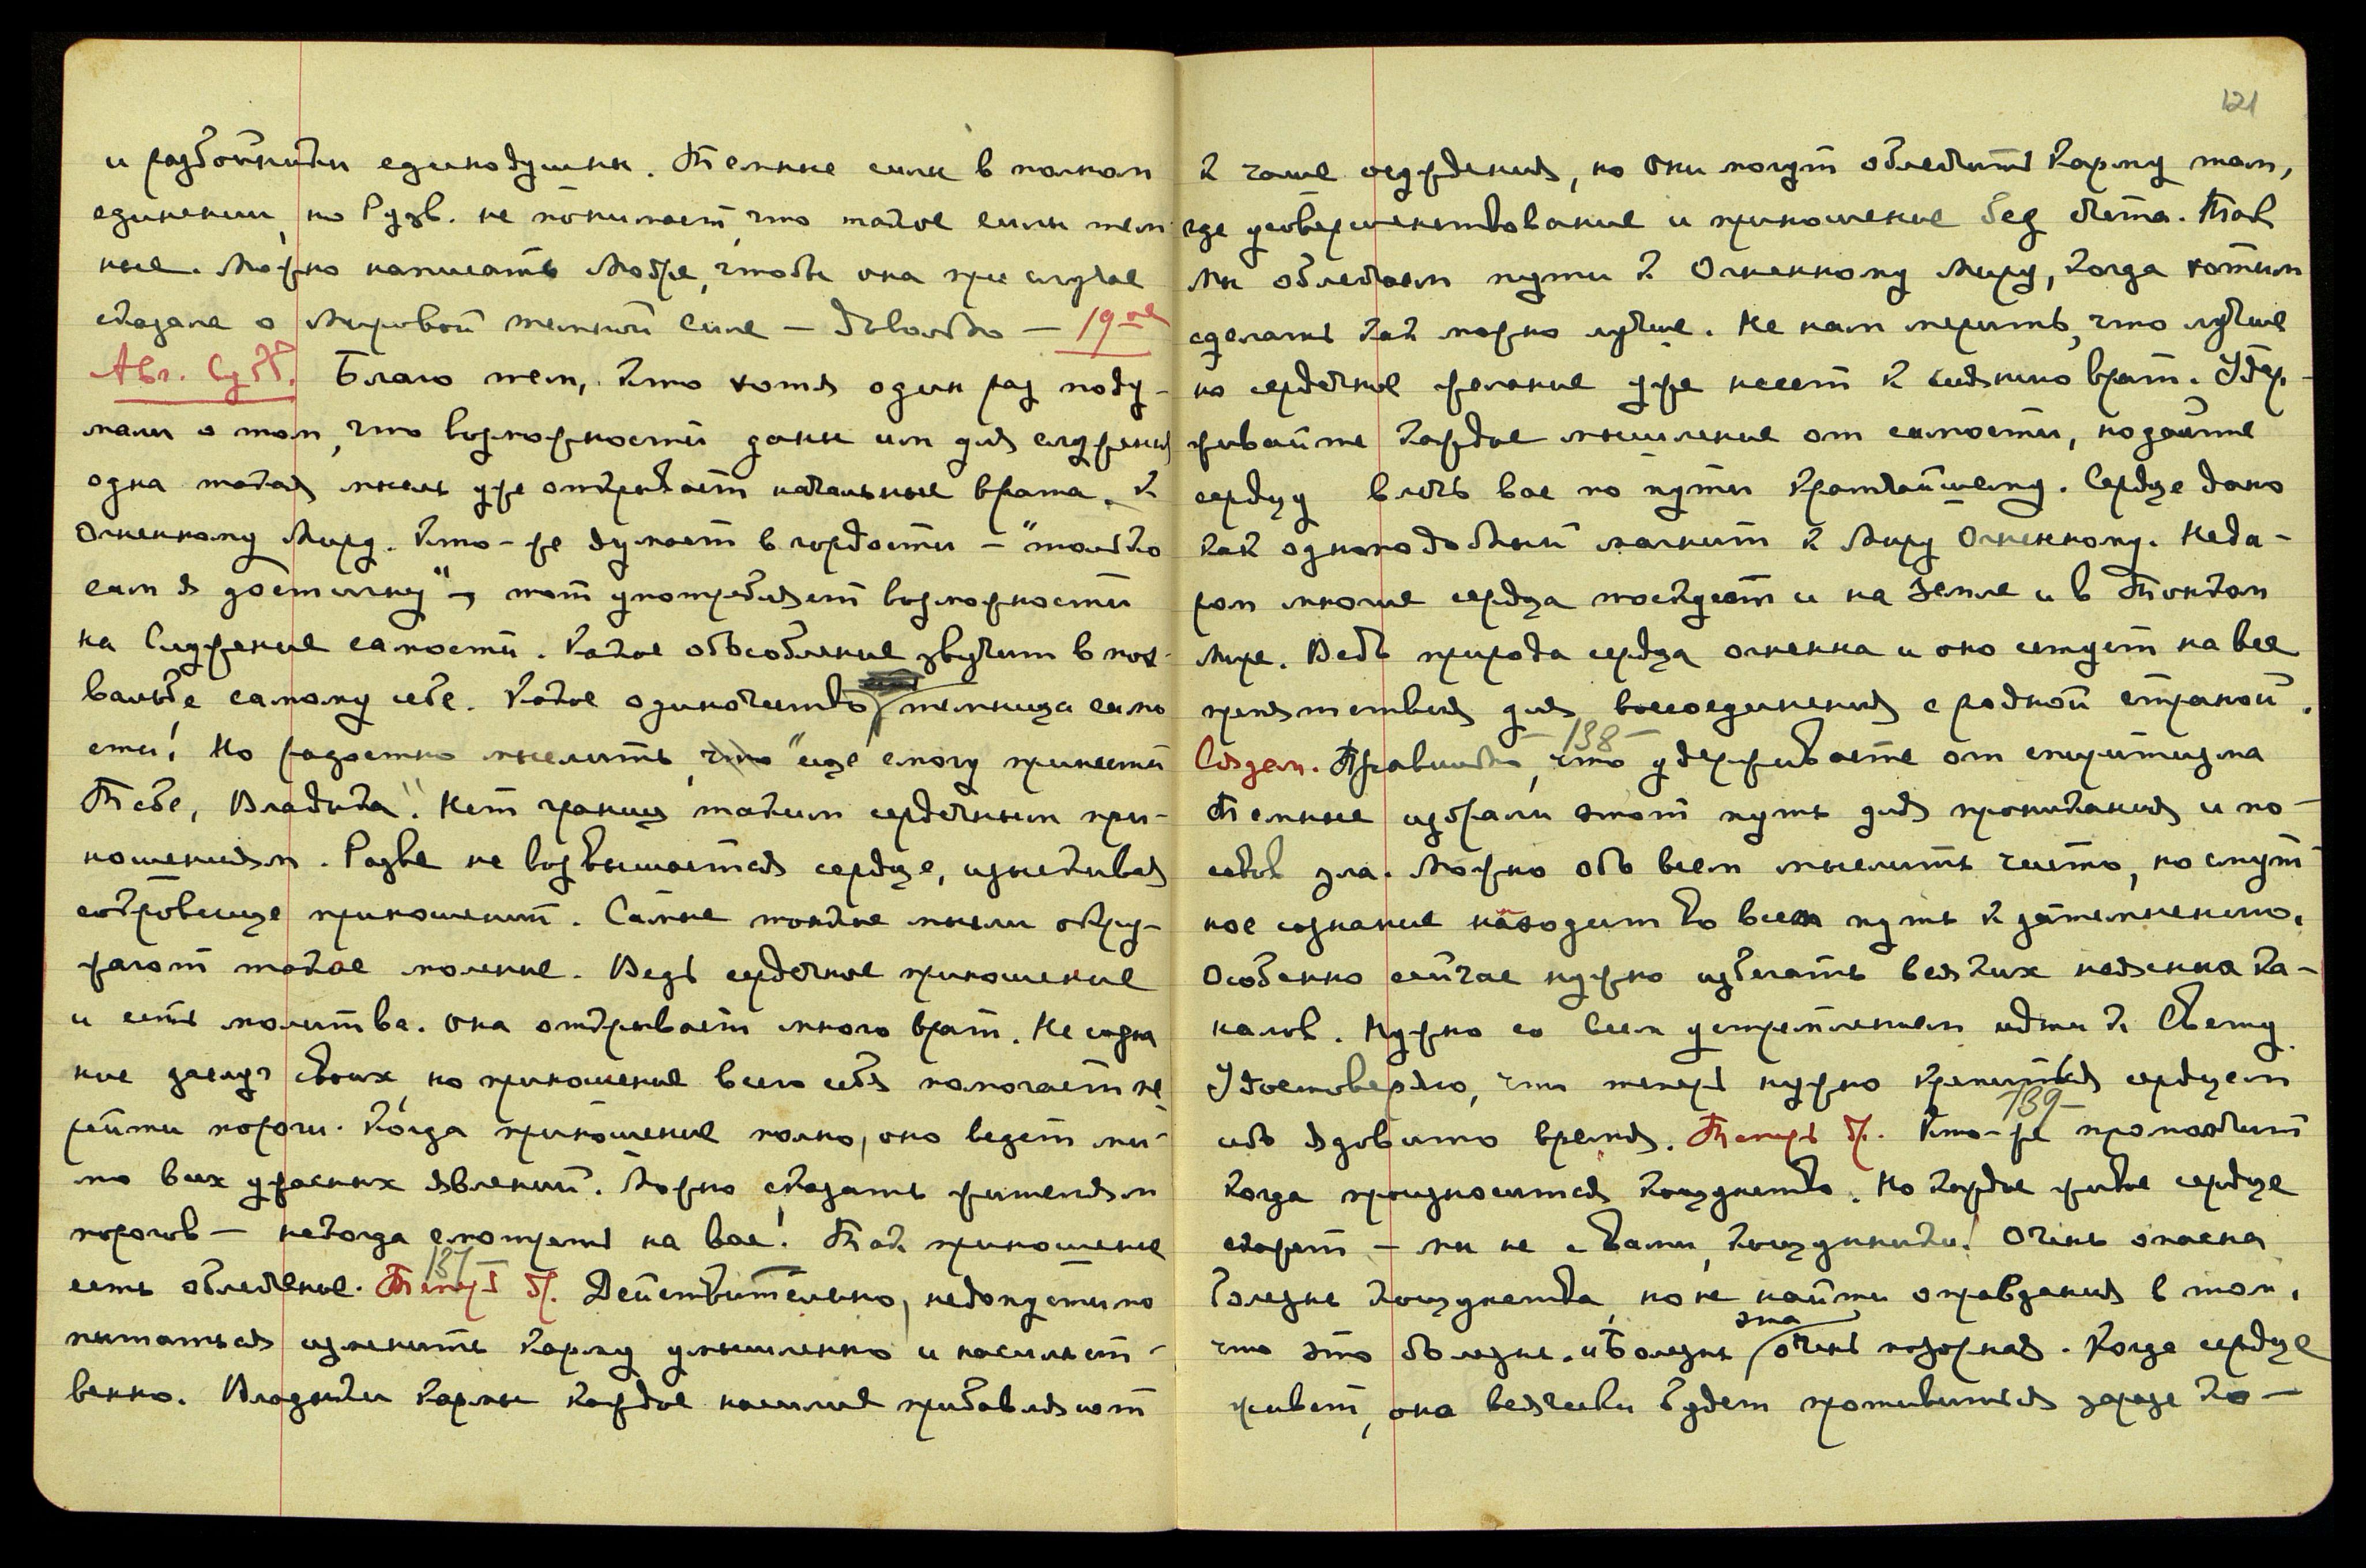 и разбойники единодушны. Темные силы в полном
единении, но Рузв. не понимает, что такое силы тем-
ные. Можно написать Модре, чтобы она при случае
сказала о мировой темной силе — довольно — 19ое
Авг. Субб. Благо тем, кто хотя один раз поду-
мали о том, что возможности даны им для служения
одна такая мысль уже открывает начальные врата к
Огненному Миру. Кто-же думает в гордости — "только
сам я достигну" — тот употребляет возможности
на Служение самости. Какое обособление звучит в пох-
вальбе самому себе. Какое одиночество темница само
сти! Но радостно мыслить, что "еще смогу принести
Тебе, Владыка". Нет границ таким сердечным при-
ношениям. Разве не возвышается сердце, изыскивая
сокровище приношений. Самые тонкие мысли окру-
жают такое моление. Ведь сердечное приношение
и есть молитва. Она открывает много врат. Не созна
ние заслуг своих, но приношение всего себя помогает пе
рейти пороги. Когда приношение полно, оно ведет ми-
мо всех ужасных явлений. Можно сказать жителям
порогов — некогда смотреть на вас! Так приношение
есть облегчение. 137 Теперь б/. Действительно, недопустимо
пытаться изменить Карму умышленно и насильст-
венно. Владыки Кармы каждое насилие прибавляют
121
к чаше осуждения, но Они могут облегчить Карму там,
где усовершенствование и приношение без счета. Так
мы облегчаем пути к Огненному Миру, когда хотим
сделать как можно лучше. Не нам мерить, что лучше
но сердечное желание уже несет к сиянию врат. Удер-
живайте каждое мышление от самости, но дайте
сердцу влечь вас по пути кратчайшему. Сердце дано
как одноподобный магнит к Миру Огненному. Неда-
ром многие сердца тоскуют и на Земле и в Тонком
Мире. Ведь природа сердца огненна и оно сетует на все
препятствия для воссоединения с родной страной.
— 138 —
Создам. Правильно, что удерживаете от спиритизма
Темные избрали этот путь для проникания и по-
севов зла. Можно обо всем мыслить чисто, но смут-
ное сознание находит во всем путь к затемнению.
Особенно сейчас нужно избегать всяких неясных ка-
налов. Нужно со всем устремлением идти к Свету
Удостоверяю, что теперь нужно крепиться сердцем
ибо ядовито время. Теперь б/. 139— Кто-же промолчит
когда произносится кощунство. Но каждое живое сердце
скажет — мы не с вами, кощунники! Очень опасна
болезнь кощунства, но не найти оправдания в том,
что это болезнь. и болезнь эта очень позорная. Когда сердце
живет, оно всячески будет противиться заразе ко-